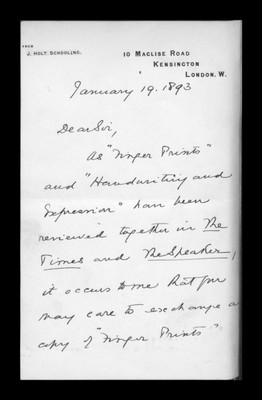 FROM
J. HOLT SCHOOLING.
10 MACLISE ROAD
KENSINGTON
LONDON. W.
January 19. 1893
Dear Sir,
As "Finger Prints"
and "Handwriting and
Expression" have been
reviewed together in The
Times and The Speaker,
it occurs to me that you
may care to exchange a
copy of "Finger Prints"